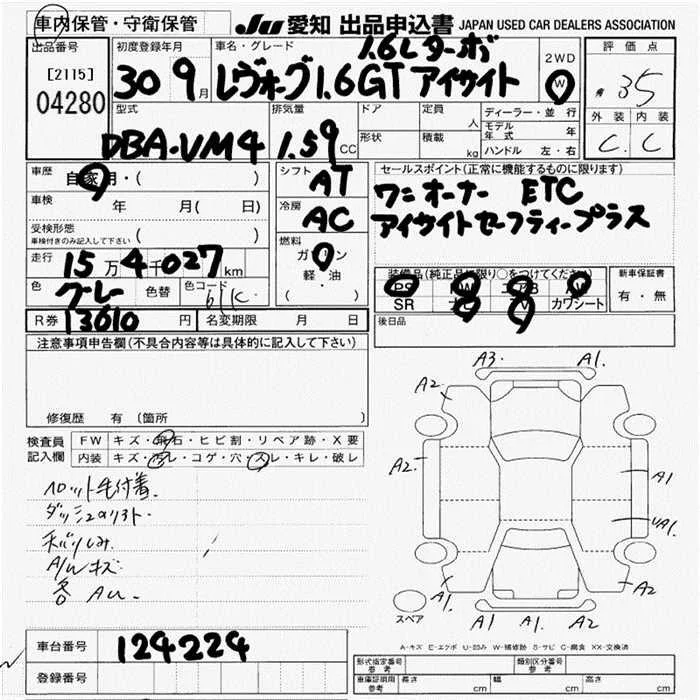 車内保管・守衛保管
JU 愛知 出品申込書 JAPAN USED CAR DEALERS ASSOCIATION
出品番号
[2115]
04280
初度登録年月
30 9月
車名・グレード
1.6Lターボ
レヴォーグ1.6GTアイサイト
2WD
4W
評価点
35
外装 内装
C. C
型式
DBA-VM4
排気量
1.59 CC
ドア
形状
定員 人
積載 kg
ディーラー・並行
モデル年式 年
ハンドル 左・右
車歴
自家用・( )
車検 年 月( 日)
受検形態
車検付きのみ記入して下さい ( )
走行
15万4千027km
色
グレー
色替
色コード
61K
シフト
AT
冷房
AC
燃料
ガソリン
軽・油
( )
セールスポイント(正常に機能するものに限ります)
ワンオーナー ETC
アイサイトセーフティープラス
装備品(純正品に限り○をつけてください)
PS PW エアB AW
SR ナビ TV カワシート
新車保証書
有・無
R券 13010 円
名変期限 月 日
後日品
注意事項申告欄(不具合内容等は具体的に記入して下さい)
修復歴 有 (箇所 )
検査員記入欄
FW キズ・飛石・ヒビ割・リペア跡・X要
内装 キズ・汚レ・コゲ・穴・スレ・キレ・破レ
フロット毛付着.
A/Wキズ
各 AU.
A3. A1.
A2
A2.
A1
UA1.
A1.
A2
A1 A1. A2
スペア
A1.
A-キズ E-エクボ U-凹み W-補修跡 S-サビ C-腐食 XX-交換済
車台番号 124224
登録番号
形式指定番号 参考
類別区分番号 参考
車庫証明用 参考
長さ cm 幅 cm 高さ cm